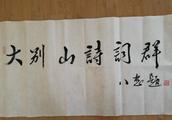 大别山詩詞群
八志題